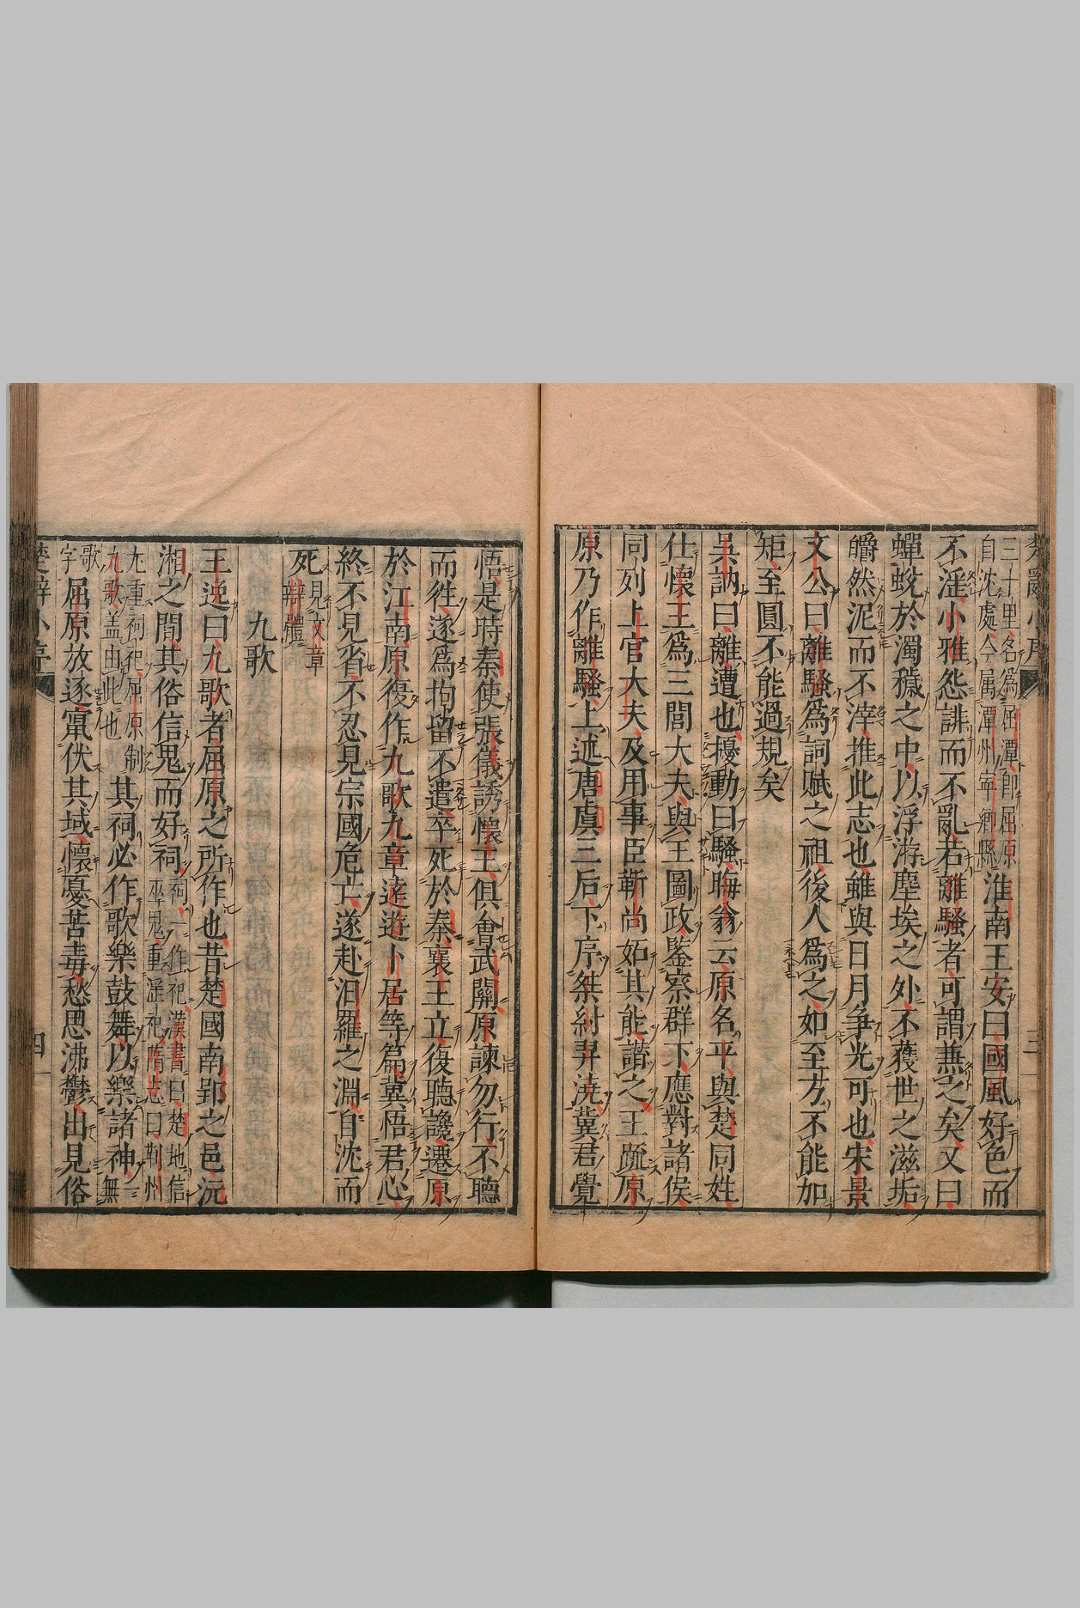 三十里名爲屈潭卽屈原
自沈處今属潭州寧郷縣
淮南王安曰國風好色而
不淫小雅怨誹而不亂若離騷者可謂兼之矣又曰
蟬蛻於濁穢之中以浮游塵埃之外不獲世之滋垢
皭然泥而不滓推此志也雖與日月争光可也宋景
文公曰離騷爲詞賦之祖後人爲之如至方不能加
矩至圓不能過規矣
吳訥曰離遭也擾動曰騷晦翁云原名平與楚同姓
仕懷王爲三閭大夫與王圖政鑒察群下應對諸侯
同列上官大夫及用事臣靳尚妬其能譛之王疏原
原乃作離騷上述唐虞三后下序桀紂羿澆冀君覺
悟是時秦使張儀誘懷王俱會武關原諫勿行不聽
而徃遂爲拘留不遣卒死於秦襄王立復聽讒遷原
於江南原復作九歌九章遠遊卜居等篇冀悟君心
終不見省不忍見宗國危亡遂赴汨羅之淵自沈而
死
見文章
辯體
九歌
王逸曰九歌者屈原之所作也昔楚國南郢之邑沅
湘之間其俗信鬼而好祠
祠一作祀漢書曰楚地信
巫鬼重淫祀隋志曰荆州
尢重祠祀屈原制
九歌盖由此也
其祠必作歌樂鼓舞以樂諸神
無
歌
字
屈原放逐竄伏其域懷憂苦毒愁思沸鬱出見俗
楚辭小序
三
四